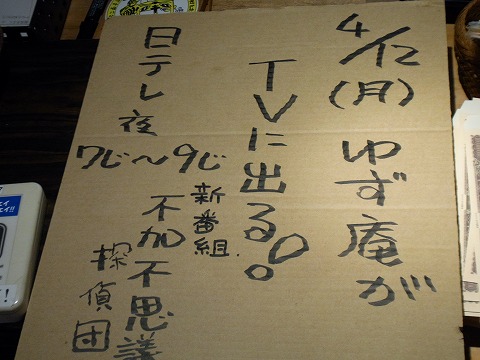 4/12(月)ゆず庵が
TVに出る。
日テレ夜
7じ〜9じ
新番組.
不加不思議
探偵団